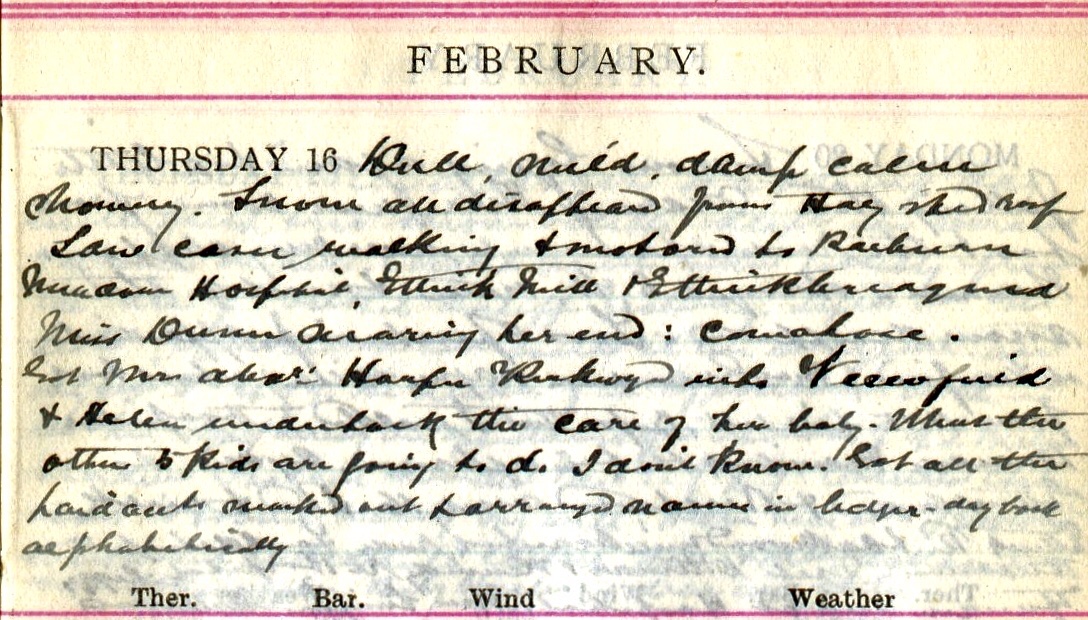 FEBRUARY.
THURSDAY 16 Dull, mild, damp calm
Snow all disappeared from Hay shed roof
Saw cases walking & motored to Raeburn
Meadow Hospital, Ettrick Mill & Ettrickbraeqnd
Miss Dunn nearing her end: comatose.
Got Mrs Alexr Harper Kirkwynd into Viewfield
& Helen undertook the care of her baby. What the
other 5 kids are going to do I don't know. Got all the
paid accts marked out & arranged names in ledger-daybook
alphabetically
Ther. Bar. Wind Weather